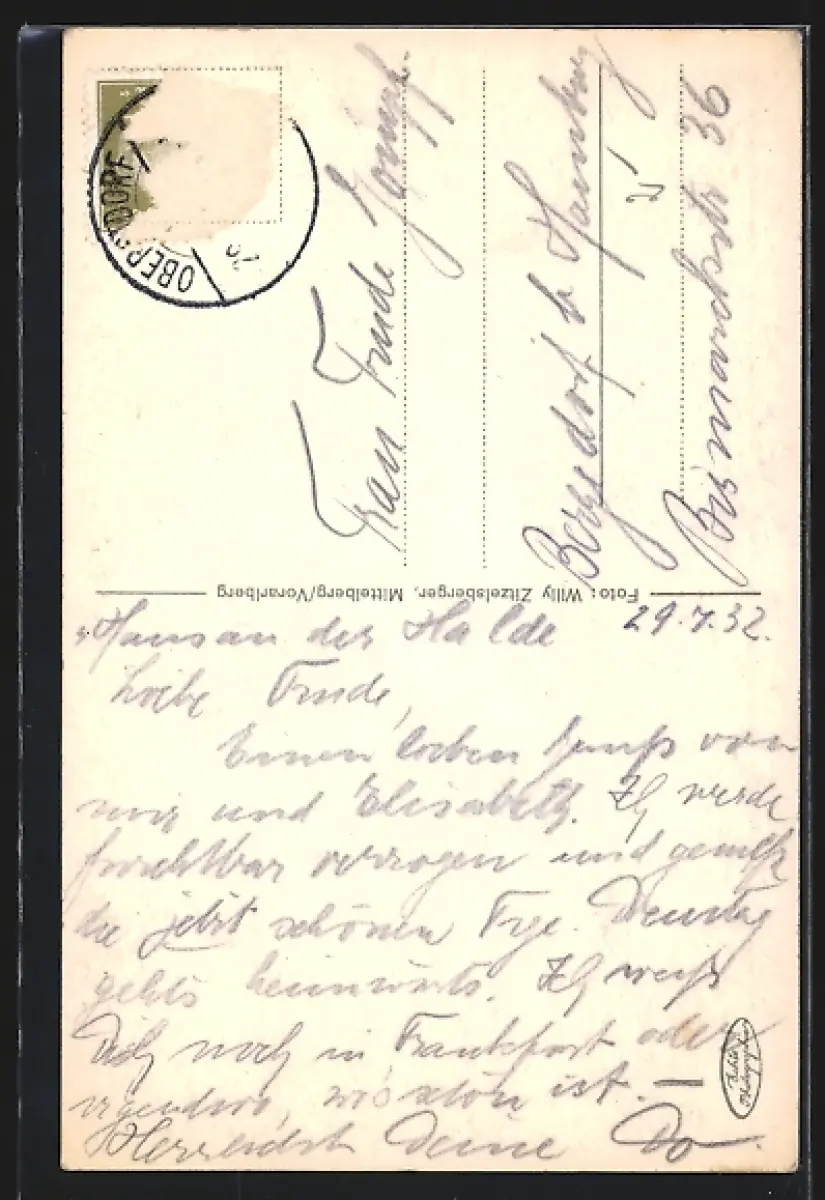 OBER DORF
Frau Trude
Bergedorf b Hamburg
Bismarckstr 36
Foto: Willy Zitzelsberger, Mittelberg/Vorarlberg
Haus an der Halde 29.7.32.
Liebe Trude,
Einen lieben Gruß von
mir und Elisabeth. Ich werde
furchtbar verzogen und genieße
die jetzt schönen Tge. Dienstag
gehts heimwärts. Ich weiß
Dich noch in Frankfort oder
irgendwo, wo's schön ist. —
Herzlichst Deine Do
Echte Photographie